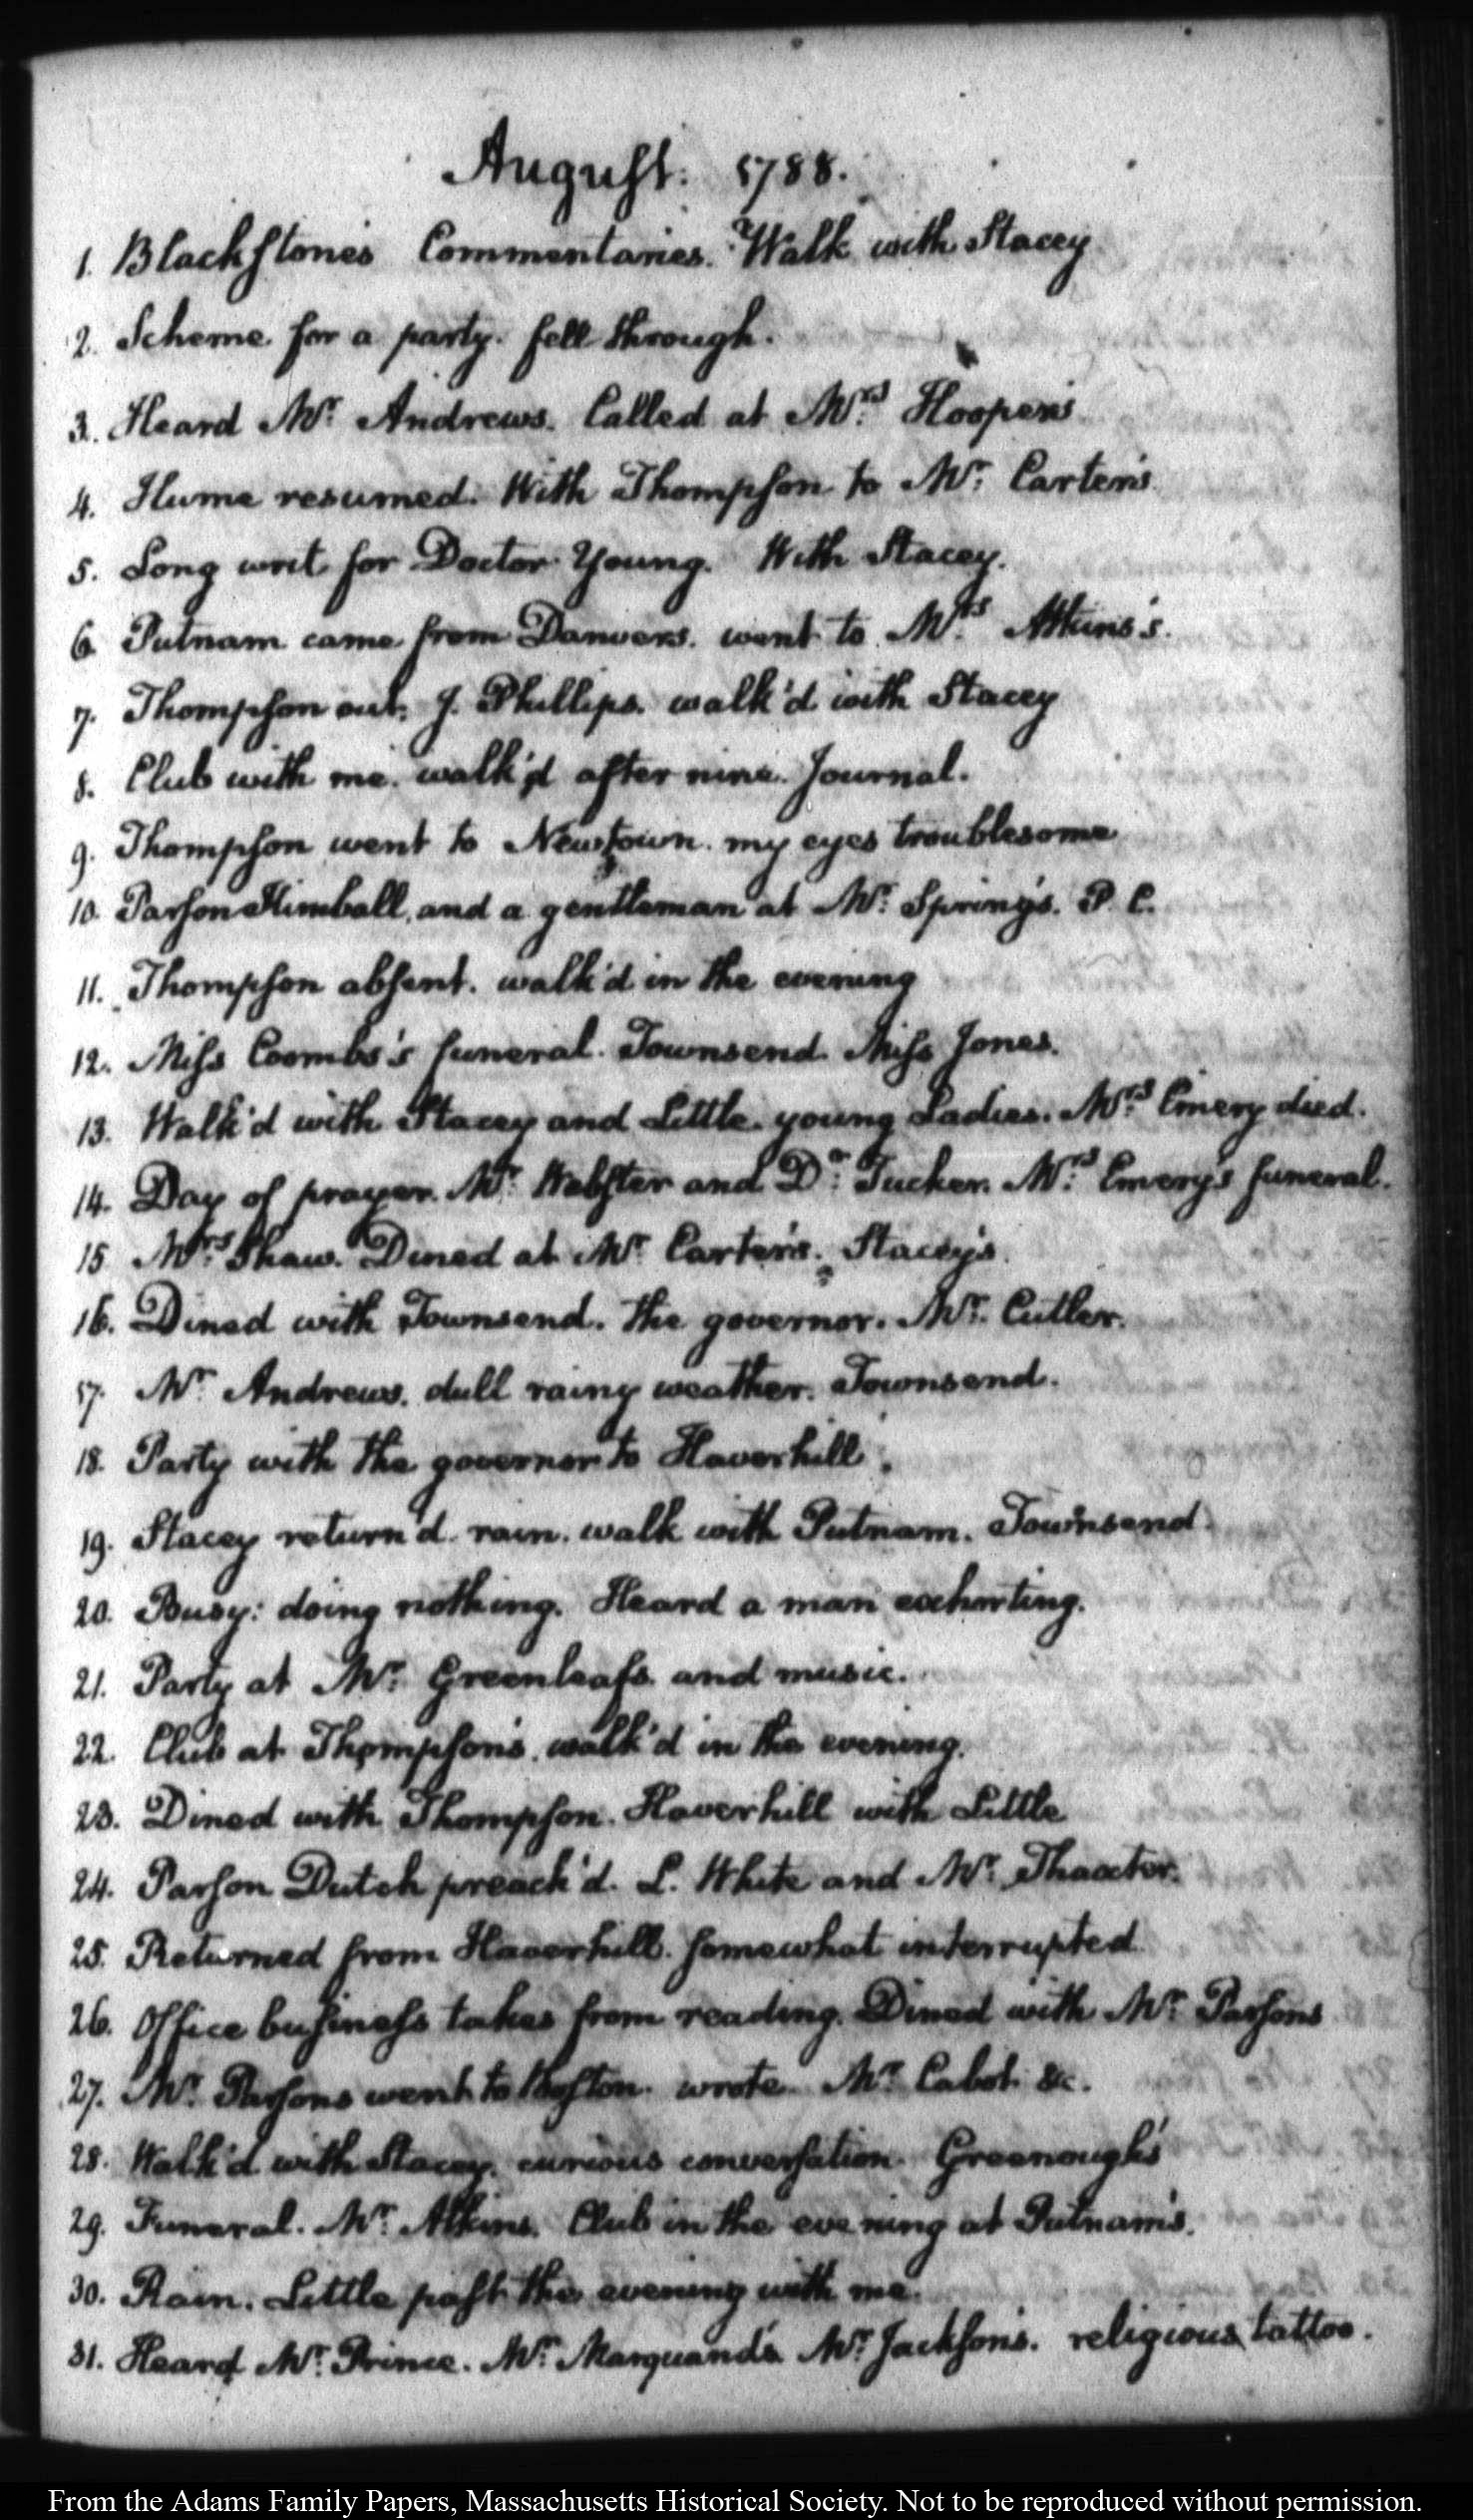 August. 1788.
1. Blackstone's Commentaries. Walk with Stacey
2. Scheme for a party. fell through.
3. Heard Mr. Andrews. Called at Mrs. Hooper's
4. Hume resumed. With Thompson to Mr. Carter's
5. Long writ for Doctor Young. With Stacey.
6. Putnam came from Danvers. went to Mrs. Atkins's.
7. Thompson out. J. Phillips. walk'd with Stacey
8. Club with me. walk'd after nine. Journal.
9. Thompson went to Newtown. my eyes troublesome
10. Parson Kimball, and a gentleman at Mr. Spring's. P. C.
11. Thompson absent. walk'd in the evening
12. Miss Coombs's funeral. Townsend. Miss Jones.
13. Walk'd with Stacey and Little. young Ladies. Mrs. Emery died.
14. Day of prayer. Mr. Webster and Dr. Tucker. Mrs. Emery's funeral.
15 Mrs. Shaw. Dined at Mr. Carter's. Stacey's.
16. Dined with Townsend. the governor. Mr. Cutler.
17. Mr. Andrews. dull rainy weather. Townsend.
18. Party with the governor to Haverhill.
19. Stacey return'd. rain. walk with Putnam. Townsend.
20. Busy: doing nothing. Heard a man exhorting.
21. Party at Mr. Greenleafs. and music.
22. Club at Thompson's. walk'd in the evening.
23. Dined with Thompson. Haverhill with Little
24. Parson Dutch preach'd. L. White and Mr. Thaxter.
25. Returned from Haverhill. somewhat interrupted
26. Office business takes from reading. Dined with Mr. Parsons
27. Mr. Parsons went to Boston. wrote. Mr. Cabot. &c.
28. Walk'd with Stacey. curious conversation. Greenough's
29. Funeral. Mr. Atkins. Club in the evening at Putnam's.
30. Rain. Little past the evening with me.
31. Heard Mr. Prince. Mr. Marquand's Mr. Jackson's. religious tattoo.
From the Adams Family Papers, Massachusetts Historical Society. Not to be reproduced without permission.